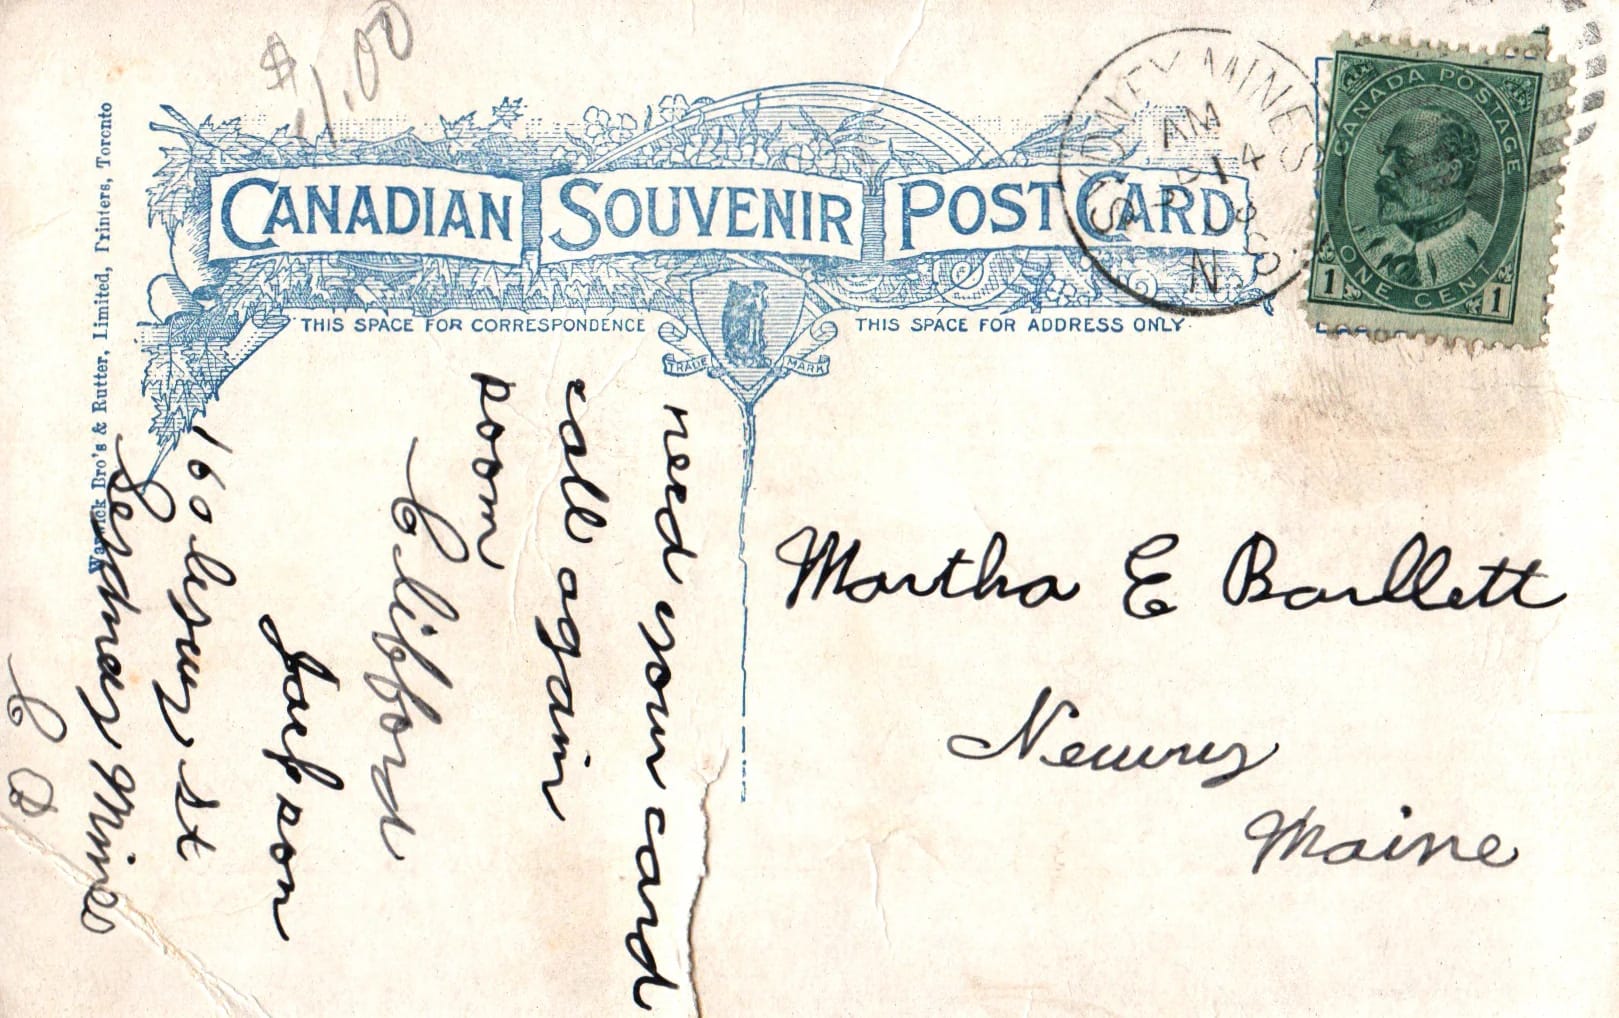 $1.00
CANADIAN SOUVENIR POST CARD
THIS SPACE FOR CORRESPONDENCE
THIS SPACE FOR ADDRESS ONLY
TRADE MARK
SYDNEY MINES
AM
4
N
CANADA POSTAGE
ONE CENT
1 1
Warwick Bro's & Rutter, Limited, Printers, Toronto
need your card
call again
poom
Clifford
Jackson
160 St
Sydney Mines
C B
Martha E Barllett
Newry
Maine